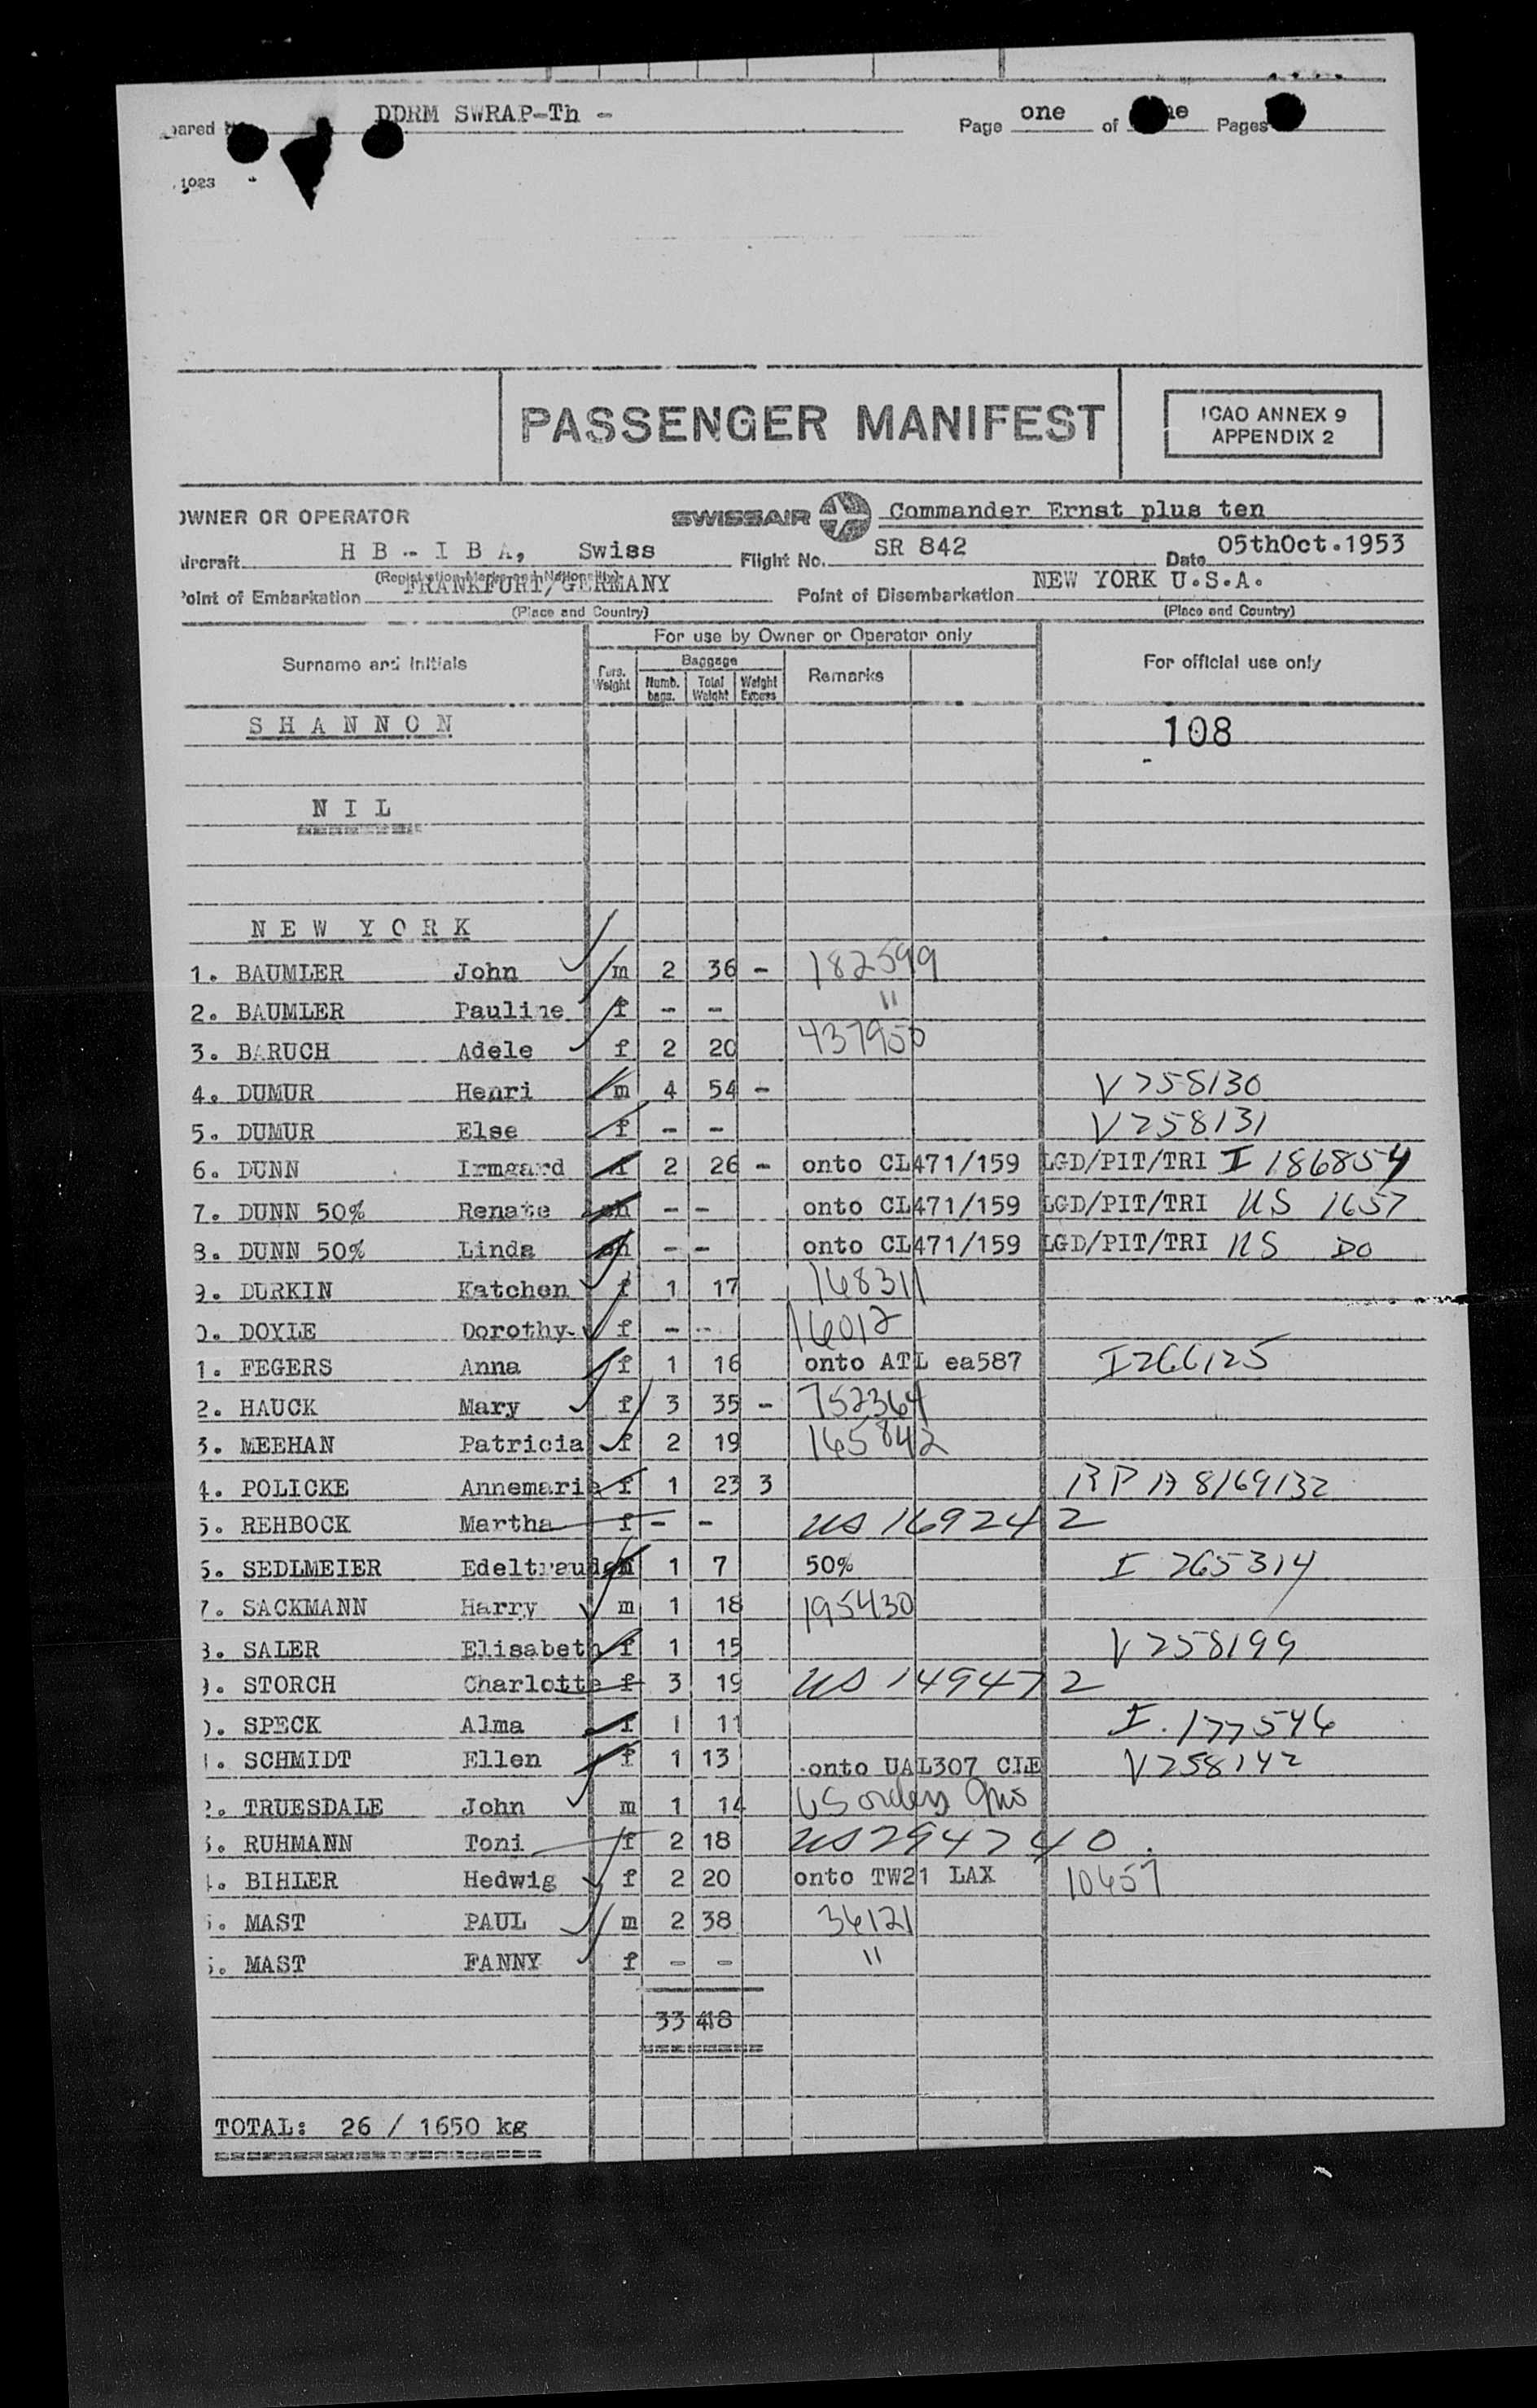 DDRM SWRAP-Th -
Page one of Pages
1023
PASSENGER MANIFEST
ICAO ANNEX 9
APPENDIX 2
OWNER OR OPERATOR SWISSAIR Commander Ernst plus ten
Aircraft HB-IBA, Swiss Flight No. SR 842 Date 05thOct.1953
(Registration Marks and Nationality)
Point of Embarkation FRANKFURT/GERMANY Point of Disembarkation NEW YORK U.S.A.
(Place and Country) (Place and Country)
For use by Owner or Operator only
Surname and Initials Pers. Weight Baggage Numb. bags. Total Weight Weight Excess Remarks For official use only
SHANNON 108
NIL
NEW YORK
1. BAUMLER John m 2 36 - 182599
2. BAUMLER Pauline f - - "
3. BARUCH Adele f 2 20 437950
4. DUMUR Henri m 4 54 - V258130
5. DUMUR Else f - - V258131
6. DUNN Irmgard f 2 26 - onto CL471/159 LGD/PIT/TRI I 186854
7. DUNN 50% Renate ch - - onto CL471/159 LGD/PIT/TRI US 1657
8. DUNN 50% Linda ch - - onto CL471/159 LGD/PIT/TRI US DO
9. DURKIN Katchen f 1 17 168311
0. DOYLE Dorothy f - - 16012
1. FEGERS Anna f 1 16 onto ATL ea587 I266125
2. HAUCK Mary f 3 35 - 752364
3. MEEHAN Patricia f 2 19 165842
4. POLICKE Annemarie f 1 23 3 RP A 8169132
5. REHBOCK Martha f - - US 169242
6. SEDLMEIER Edeltraud ch 1 7 50% I 265314
7. SACKMANN Harry m 1 18 195430
8. SALER Elisabeth f 1 15 V258199
9. STORCH Charlotte f 3 19 US 149472
0. SPECK Alma f 1 11 I.177546
1. SCHMIDT Ellen f 1 13 onto UAL307 CLE V258142
2. TRUESDALE John m 1 14 US orders
3. RUHMANN Toni f 2 18 US294740.
4. BIHLER Hedwig f 2 20 onto TW21 LAX 10657
5. MAST PAUL m 2 38 36121
6. MAST FANNY f - - "
33 418
TOTAL: 26 / 1650 kg